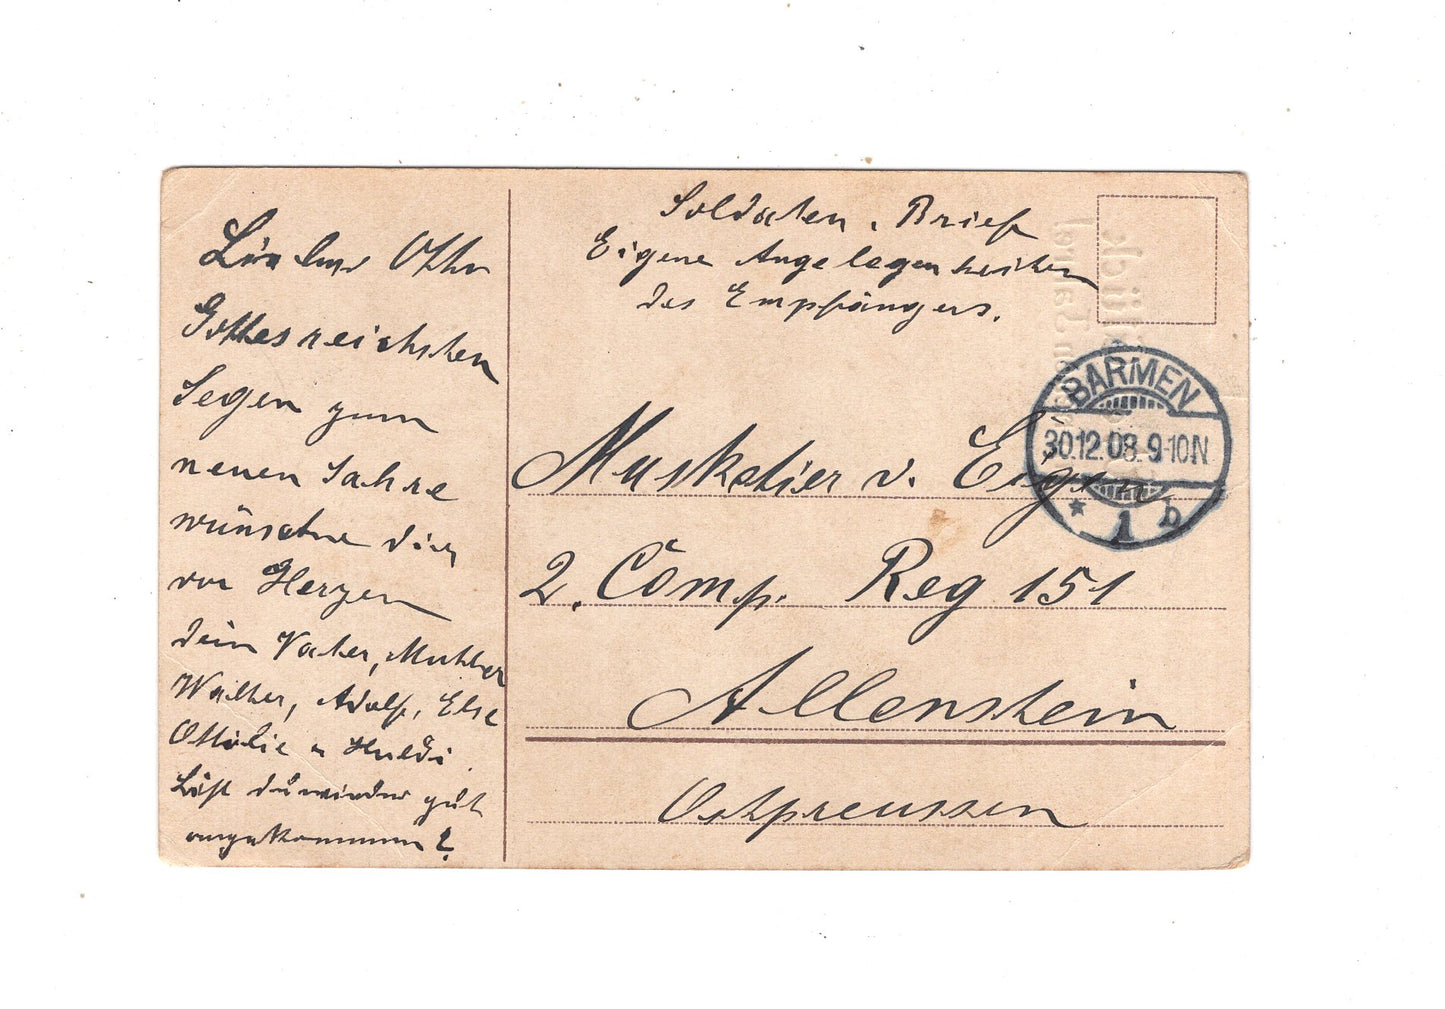 Lieber Otto
Gottes reichsten
Segen zum
neuen Jahre
wünschen dir
von Herzen
dein Vater, Mutter
Walther, Adolf, Else
Ottilie u Huldi.
Bist du wieder gut
angekommen?
Soldaten. Brief
Eigene Angelegenheiten
des Empfängers.
Musketier v. Eigen
2. Comp. Reg 151
Allenstein
Ostpreussen
BARMEN
30.12.08. 9-10N
* 1 b